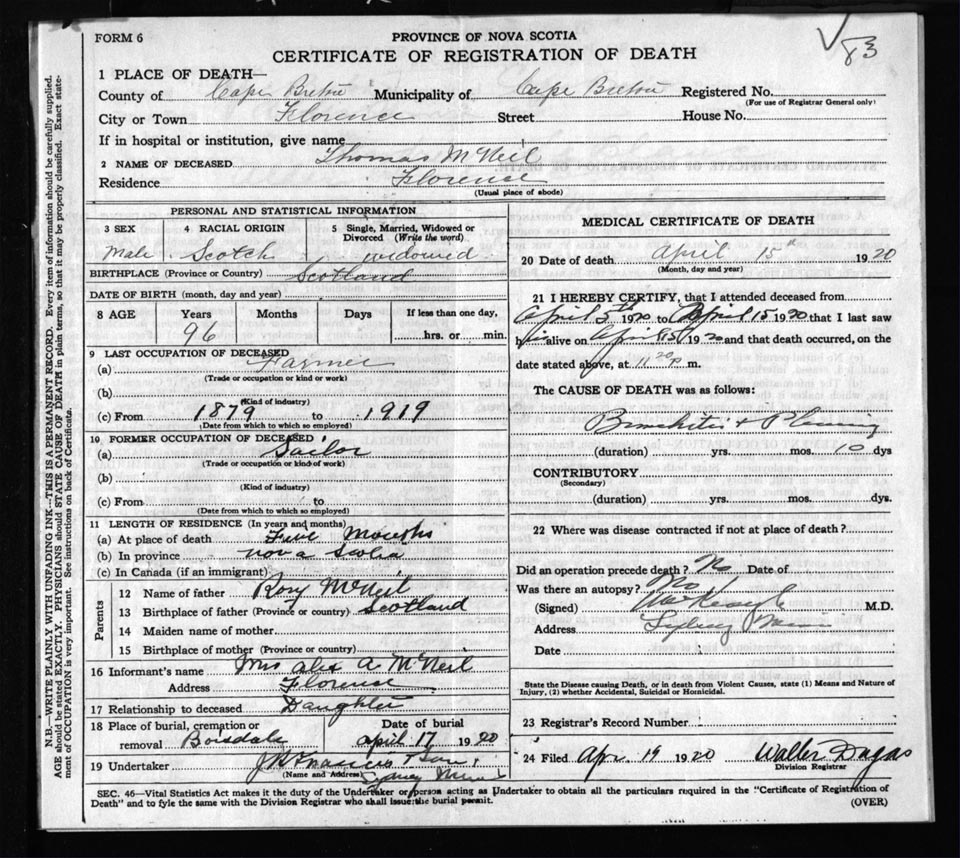 83
FORM 6
PROVINCE OF NOVA SCOTIA
CERTIFICATE OF REGISTRATION OF DEATH
1 PLACE OF DEATH—
County of Cape Breton Municipality of Cape Breton Registered No.
(For use of Registrar General only)
City or Town Florence Street House No.
If in hospital or institution, give name
2 NAME OF DECEASED Thomas McNeil
Residence Florence
(Usual place of abode)
PERSONAL AND STATISTICAL INFORMATION
3 SEX 4 RACIAL ORIGIN 5 Single, Married, Widowed or Divorced (Write the word)
Male Scotch widowed
BIRTHPLACE (Province or Country) Scotland
DATE OF BIRTH (month, day and year)
8 AGE Years Months Days If less than one day,
96 hrs. or min.
9 LAST OCCUPATION OF DECEASED
(a) Farmer
(Trade or occupation or kind or work)
(b)
(Kind of industry)
(c) From 1879 to 1919
(Date from which to which so employed)
10 FORMER OCCUPATION OF DECEASED
(a) Sailor
(Trade or occupation or kind of work)
(b)
(Kind of industry)
(c) From to
(Date from which to which so employed)
11 LENGTH OF RESIDENCE (In years and months)
(a) At place of death Five Months
(b) In province Nova Scotia
(c) In Canada (if an immigrant)
Parents
12 Name of father Rory McNeil
13 Birthplace of father (Province or country) Scotland
14 Maiden name of mother
15 Birthplace of mother (Province or country)
16 Informant's name Mrs Alex A. McNeil
Address Florence
17 Relationship to deceased Daughter
18 Place of burial, cremation or removal Boisdale Date of burial april 17 1920
19 Undertaker Francis
(Name and Address) Sydney Mines
MEDICAL CERTIFICATE OF DEATH
20 Date of death April 15th 1920
(Month, day and year)
21 I HEREBY CERTIFY, that I attended deceased from
April 5th 1920 to April 15 1920 that I last saw
him alive on April 15 1920 and that death occurred, on the
date stated above, at 11 20 p. m.
The CAUSE OF DEATH was as follows:
Bronchitis + Pleurisy
(duration) yrs. mos. 10 dys
CONTRIBUTORY
(Secondary)
(duration) yrs. mos. dys.
22 Where was disease contracted if not at place of death?
Did an operation precede death? No Date of
Was there an autopsy? No
(Signed) M.D.
Address Sydney Mines
Date
State the Disease causing Death, or in death from Violent Causes, state (1) Means and Nature of
Injury, (2) whether Accidental, Suicidal or Homicidal.
23 Registrar's Record Number
24 Filed Apr. 19 1920 Walter Dugas
Division Registrar
SEC. 46—Vital Statistics Act makes it the duty of the Undertaker or person acting as Undertaker to obtain all the particulars required in the "Certificate of Registration of
Death" and to fyle the same with the Division Registrar who shall issue the burial permit. (OVER)
N.B.—WRITE PLAINLY WITH UNFADING INK—THIS IS A PERMANENT RECORD. Every item of information should be carefully supplied.
AGE should be stated EXACTLY. PHYSICIANS should STATE CAUSE OF DEATH in plain terms, so that it may be properly classified. Exact state-
ment of OCCUPATION is very important. See instructions on back of Certificate.